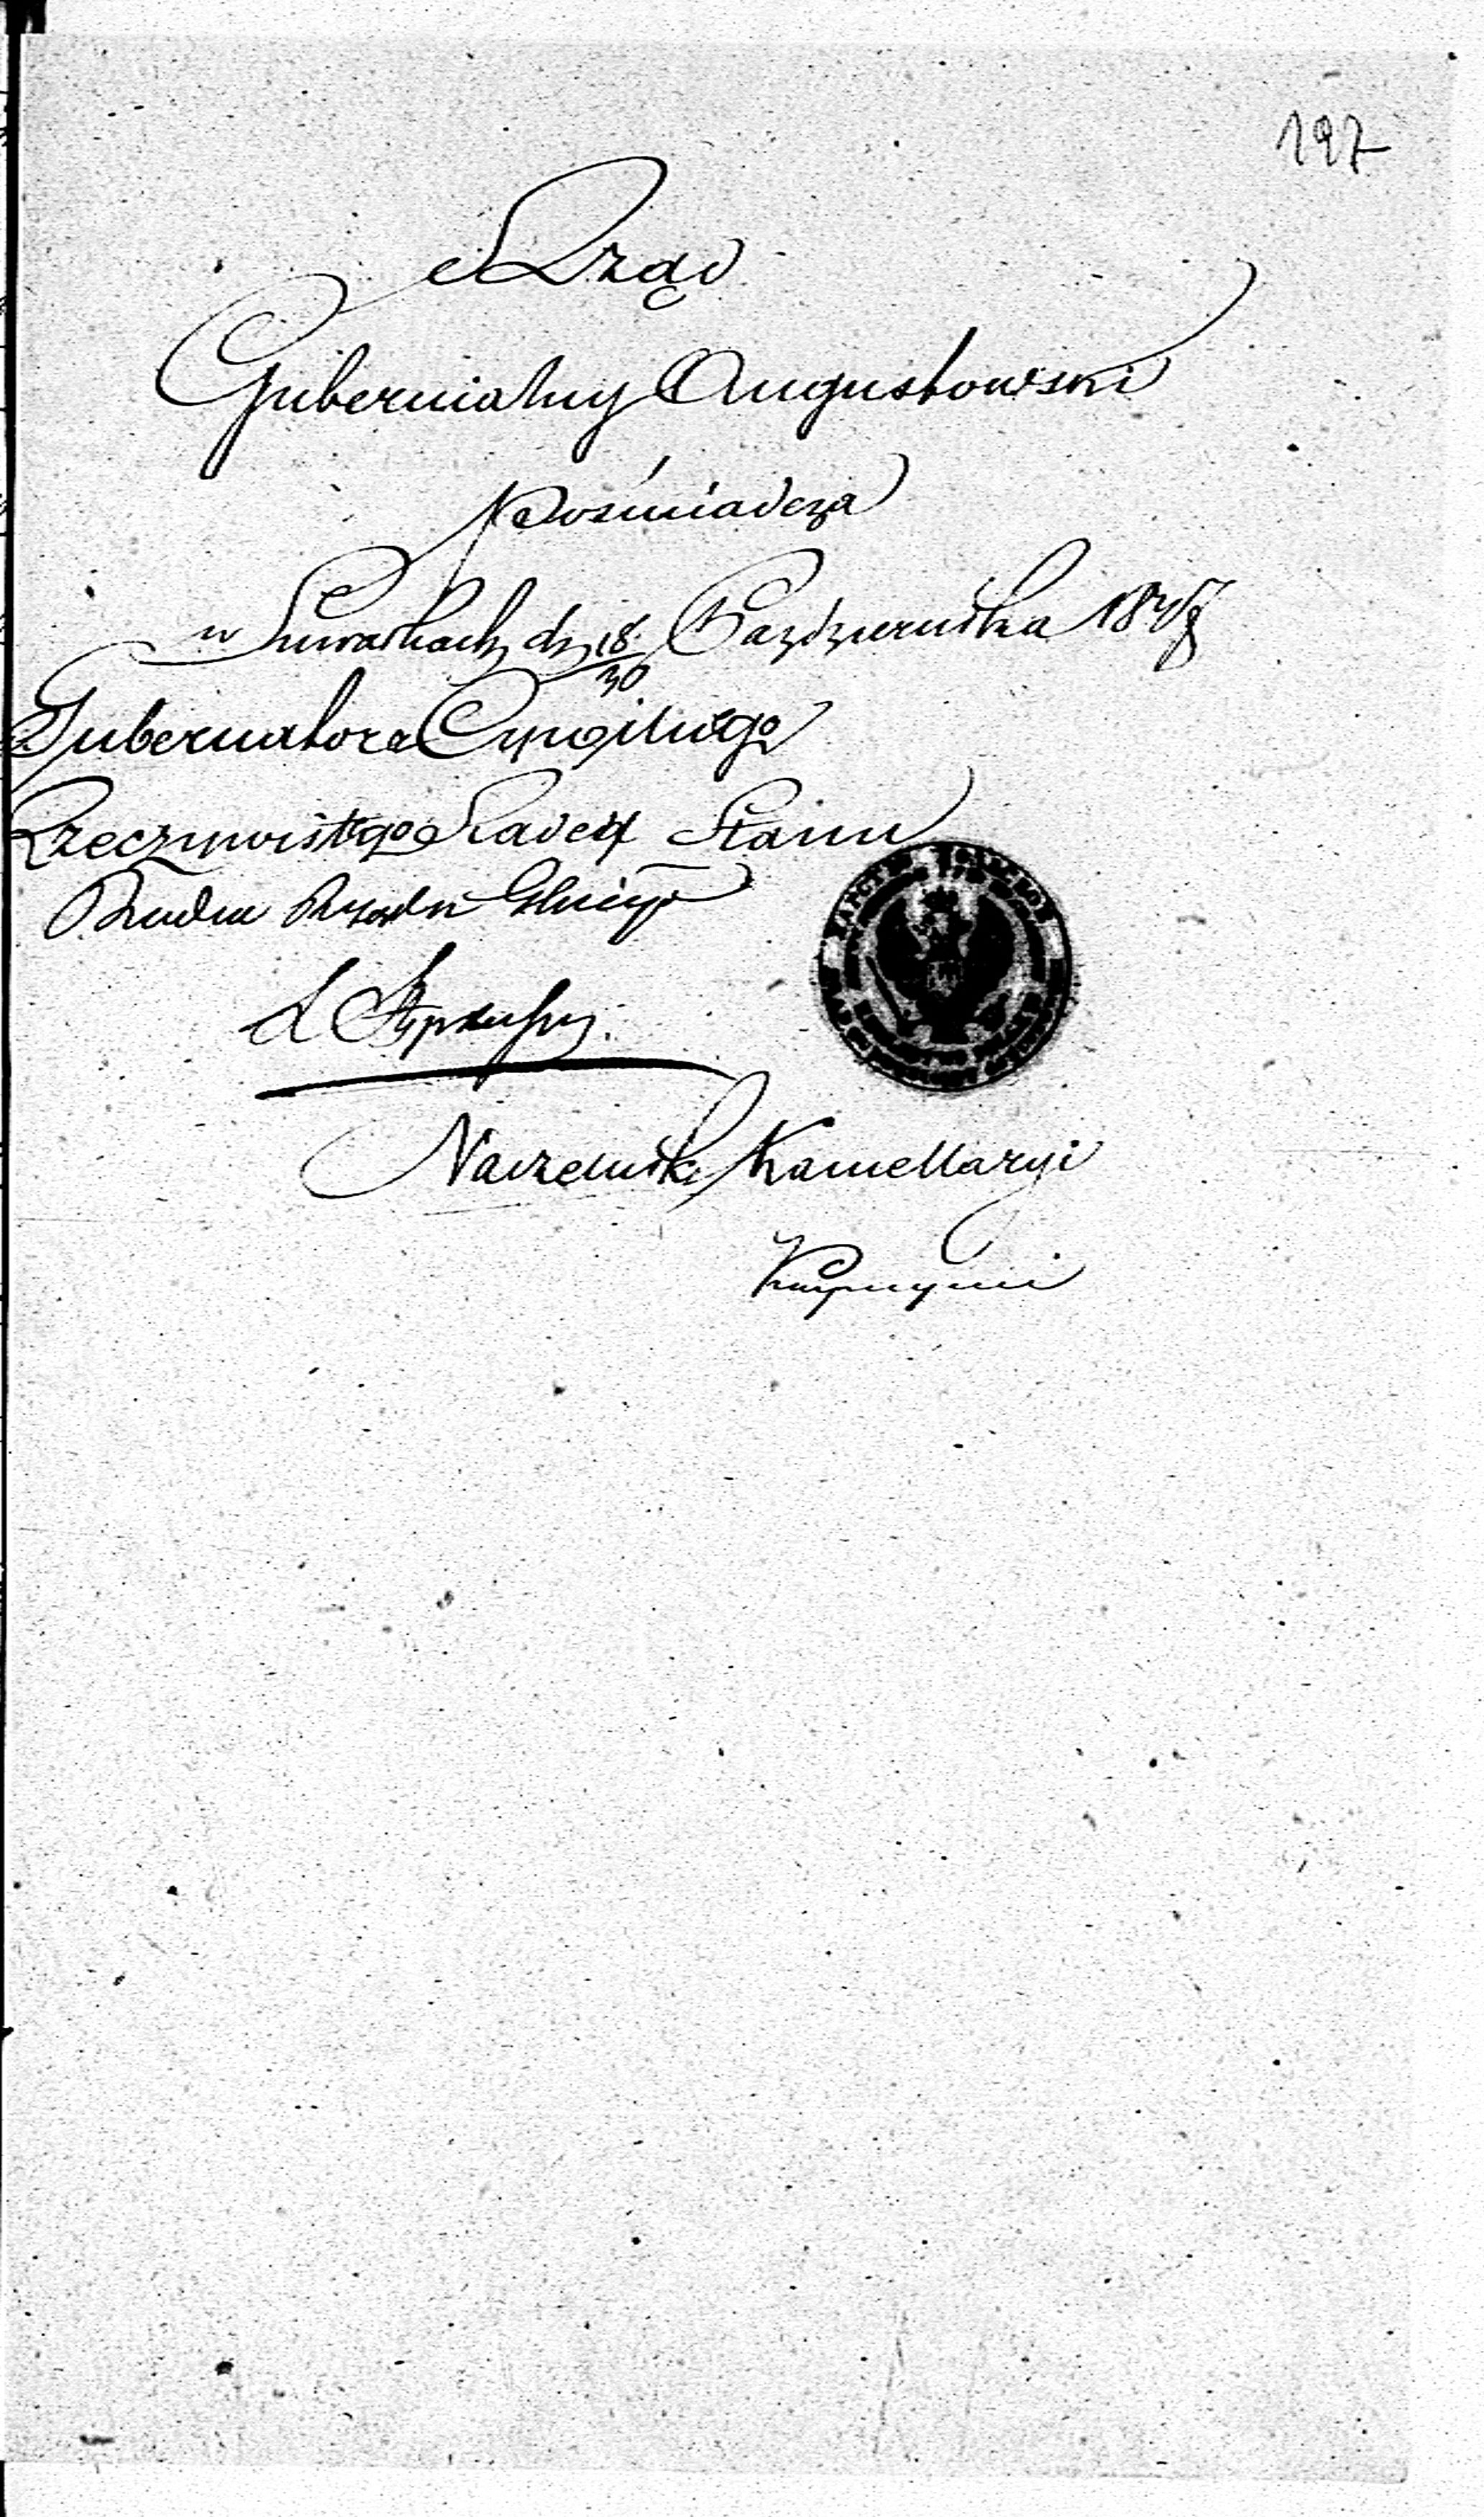 197
Rząd
Gubernialny Augustowski
Poświadcza
w Suwałkach d. 18/30 Października 1847
Gubernatora Cywilnego
Rzeczywistego Radcy Stanu
Radca
Naczelnik Kancellaryi
ЦАРСТВО ПОЛЬСКОЕ